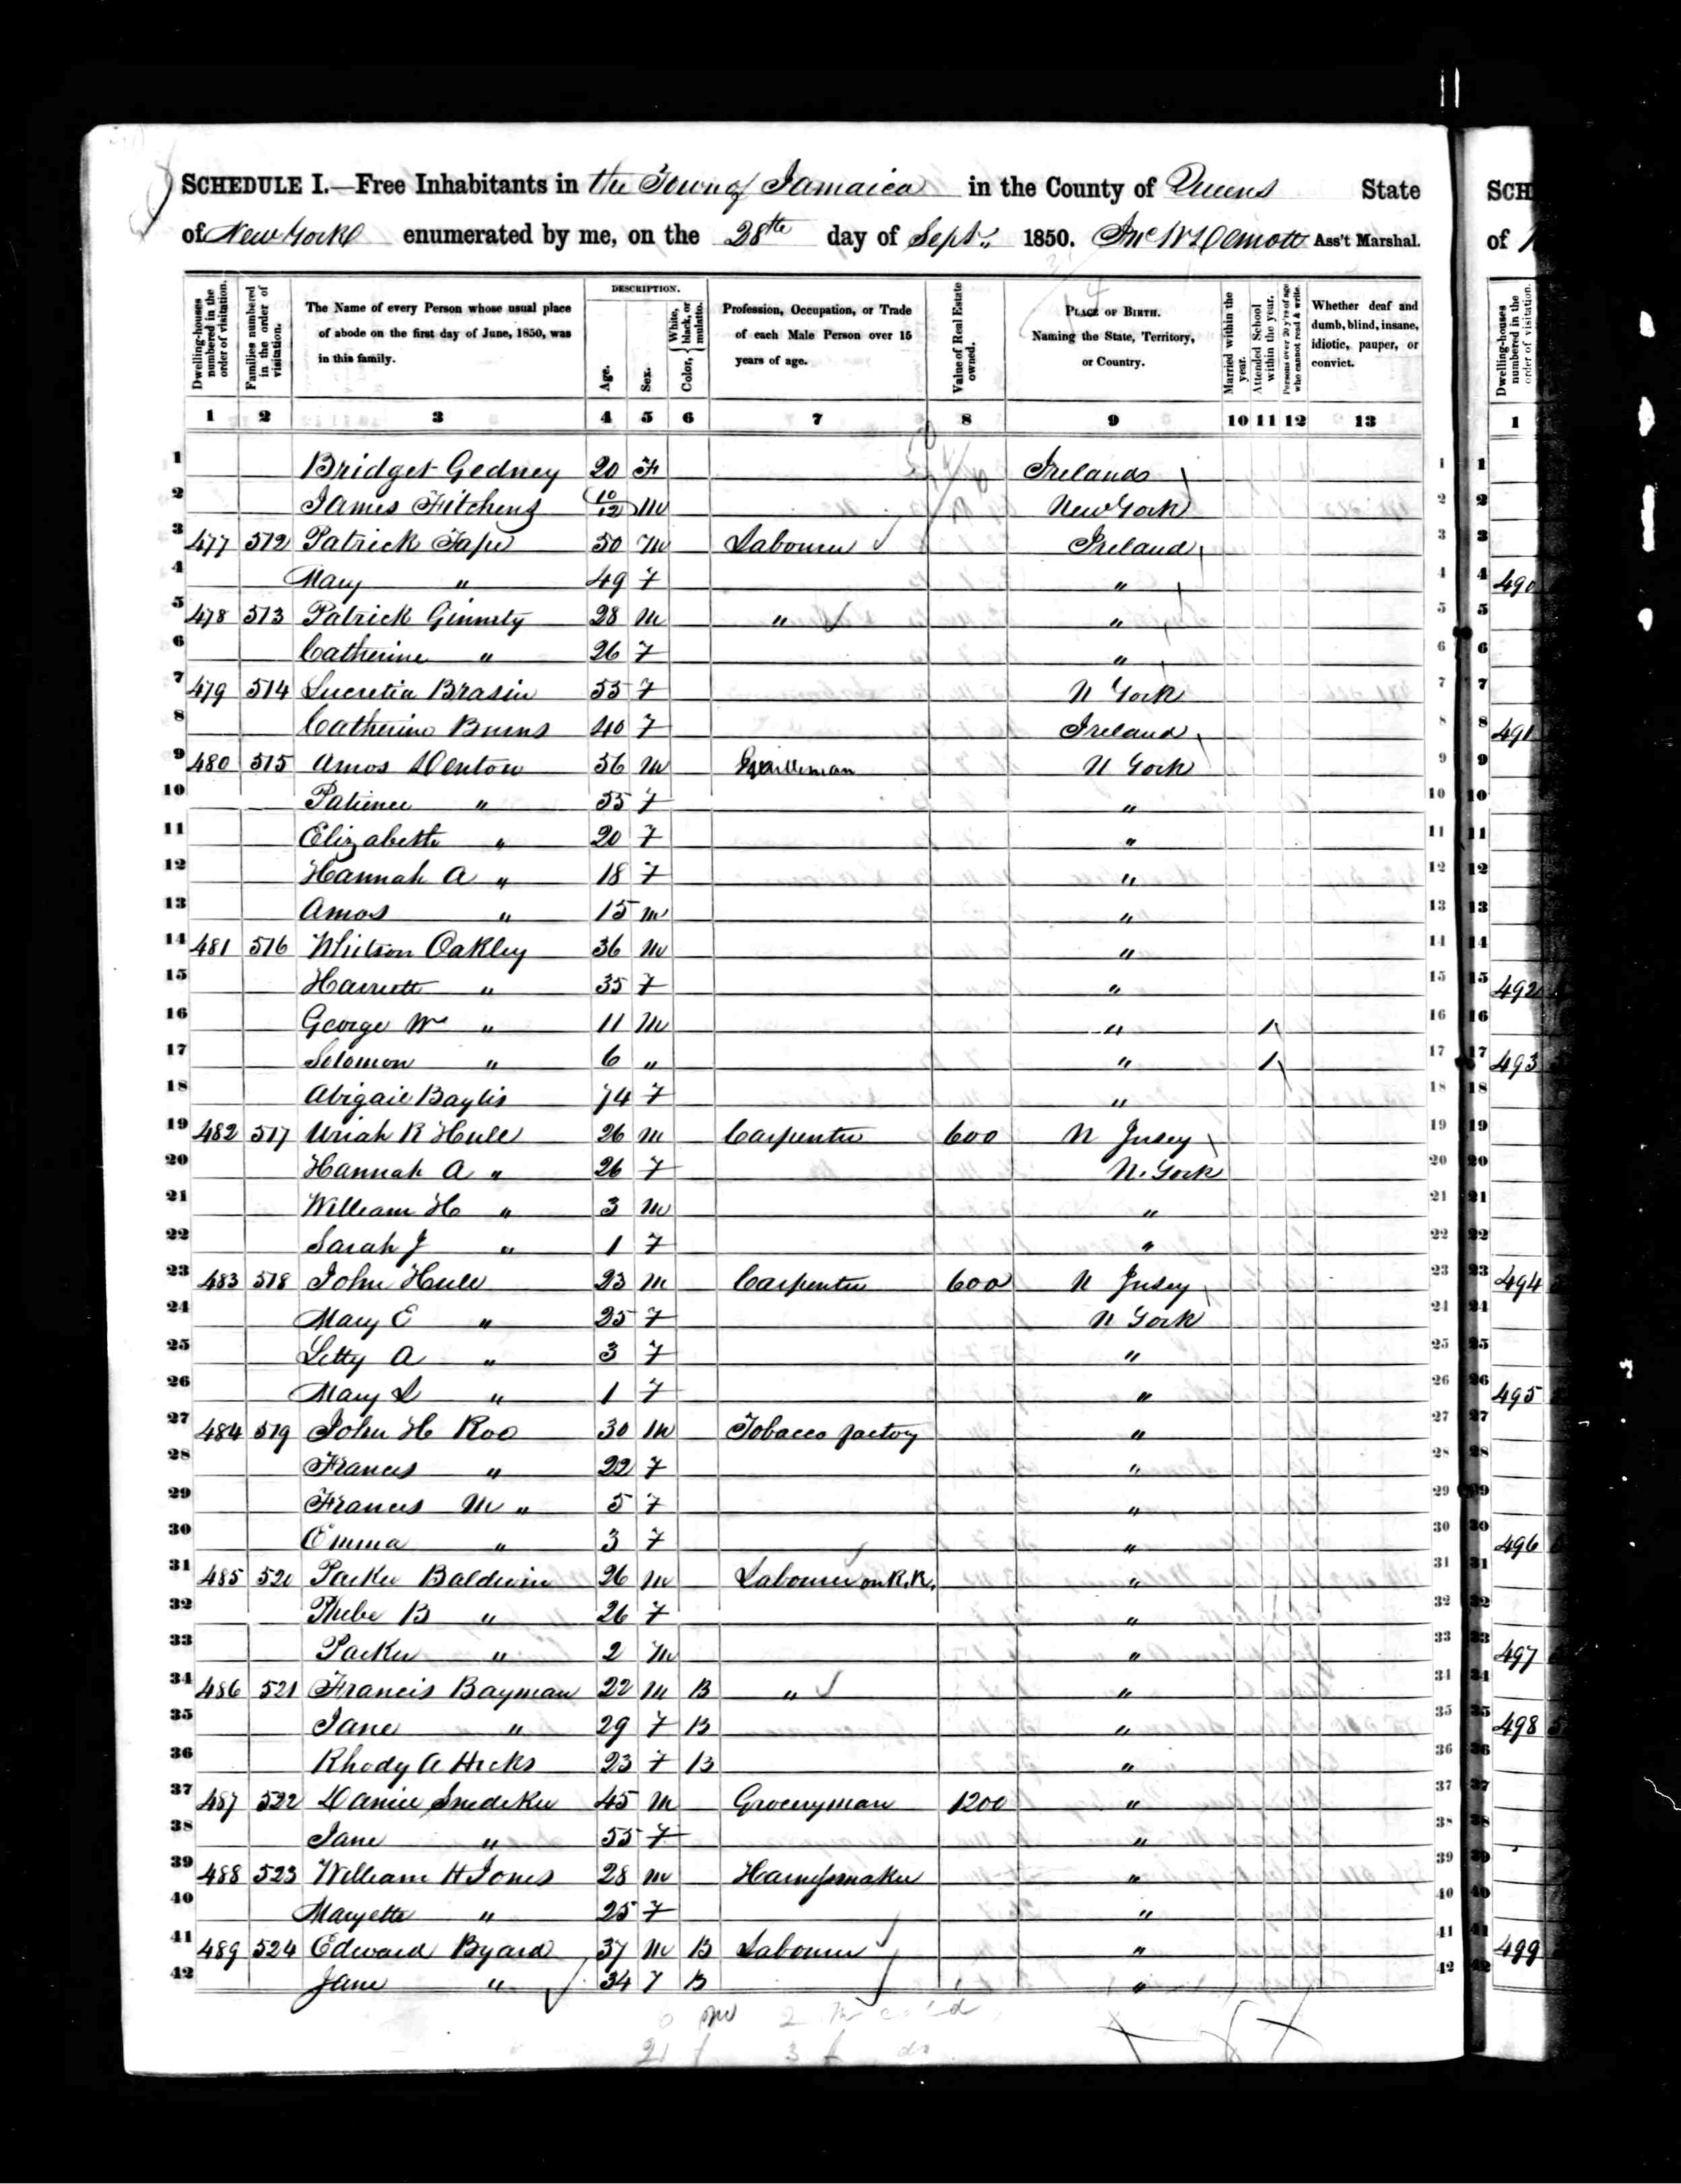 SCHEDULE I.—Free Inhabitants in the Town of Jamaica in the County of Queens State
of New York enumerated by me, on the 28th day of Sept. 1850. Ass't Marshal.
Dwelling-houses numbered in the order of visitation.
Families numbered in the order of visitation.
The Name of every Person whose usual place of abode on the first day of June, 1850, was in this family.
DESCRIPTION.
Age.
Sex.
Color, { White, black, or mulatto.
Profession, Occupation, or Trade of each Male Person over 15 years of age.
Value of Real Estate owned.
PLACE OF BIRTH. Naming the State, Territory, or Country.
Married within the year.
Attended School within the year.
Persons over 20 y'rs of age who cannot read & write.
Whether deaf and dumb, blind, insane, idiotic, pauper, or convict.
1 2 3 4 5 6 7 8 9 10 11 12 13
1 Bridget Gedney 20 F Ireland 1
2 James 10/12 M New York 2
3 477 512 Patrick 50 M Labourer Ireland 3
4 Mary " 49 F " 4
5 478 513 Patrick Ginnity 28 M " " 5
6 Catherine " 26 F " 6
7 479 514 Lucretia Brasin 55 F N York 7
8 Catherine Burns 40 F Ireland 8
9 480 515 Amos Denton 56 M Gentleman N York 9
10 Patience " 55 F " 10
11 Elizabeth " 20 F " 11
12 Hannah A " 18 F " 12
13 Amos " 15 M " 13
14 481 516 Whitson Oakley 36 M " 14
15 Harriett " 35 F " 15
16 George Wm " 11 M " 1 16
17 Solomon " 6 " " 1 17
18 Abigail Baylis 74 F " 18
19 482 517 Uriah R Hull 26 M Carpenter 600 N Jersey 19
20 Hannah A " 26 F N. York 20
21 William H " 3 M " 21
22 Sarah J " 1 F " 22
23 483 518 John Hull 23 M Carpenter 600 N Jersey 23
24 Mary E " 25 F N York 24
25 Letty A " 3 F " 25
26 Mary L " 1 F " 26
27 484 519 John H Roe 30 M Tobacco factory " 27
28 Frances " 22 F " 28
29 Frances M " 5 F " 29
30 Emma " 3 F " 30
31 485 520 Parker Baldwin 26 M Labourer on R.R. " 31
32 Phebe B " 26 F " 32
33 Parker " 2 M " 33
34 486 521 Francis Bayman 22 M B " " 34
35 Jane " 29 F B " 35
36 Rhody A Hicks 23 F B " 36
37 487 522 Daniel Snedeker 45 M Groceryman 1200 " 37
38 Jane " 55 F " 38
39 488 523 William H Jones 28 M Harnessmaker " 39
40 Maryette " 25 F " 40
41 489 524 Edward Byard 37 M B Labourer " 41
42 Jane " 34 F B " 42
SCH
of
Dwelling-houses numbered in the order of visitation.
1
1
2
3
4 490
5
6
7
8 491
9
10
11
12
13
14
15 492
16
17 493
18
19
20
21
22
23 494
24
25
26 495
27
28
29
30 496
31
32
33 497
34
35 498
36
37
38
39
40
41 499
42